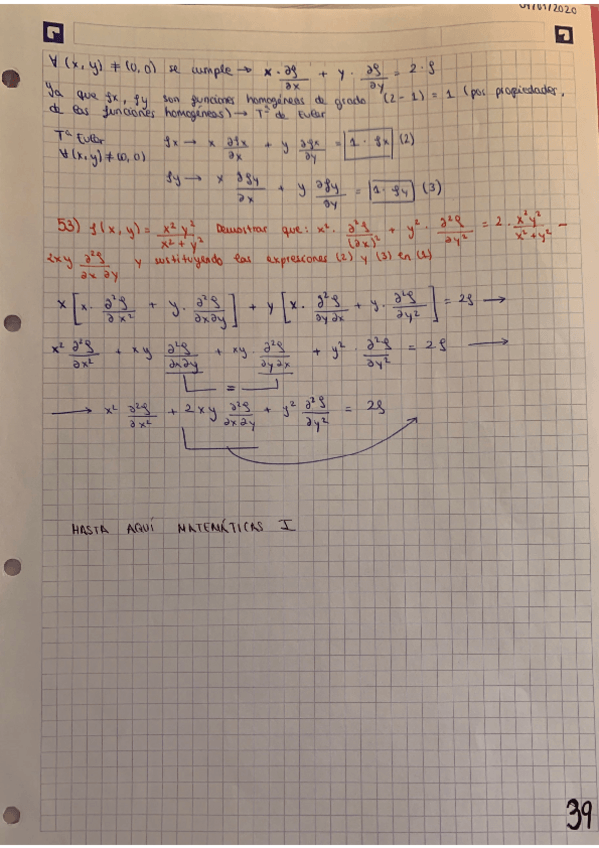 07/01/2020
∀ (x, y) ≠ (0, 0) se cumple → x · ∂f/∂x + y · ∂f/∂y = 2 · f
Ya que fx, fy son funciones homogéneas de grado (2 - 1) = 1 (por propiedades,
de las funciones homogéneas) → Tª de Euler
Tª Euler fx → x ∂fx/∂x + y ∂fx/∂y = 1 · fx (2)
∀ (x, y) ≠ (0, 0)
fy → x ∂fy/∂x + y ∂fy/∂y = 1 · fy (3)
53) f(x, y) = x² y²/x² + y² Demostrar que: x² · ∂²f/(∂x)² + y² · ∂²f/∂y² = 2 · x² y²/x² + y² -
2xy ∂²f/∂x ∂y y sustituyendo las expresiones (2) y (3) en (1)
x [x · ∂²f/∂x² + y · ∂²f/∂x∂y] + y [x · ∂²f/∂y∂x + y · ∂²f/∂y²] = 2f →
x² ∂²f/∂x² + xy ∂²f/∂x∂y + xy ∂²f/∂y∂x + y² · ∂²f/∂y² = 2f →
=
→ x² ∂²f/∂x² + 2xy ∂²f/∂x∂y + y² ∂²f/∂y² = 2f
HASTA AQUÍ MATEMÁTICAS I
39